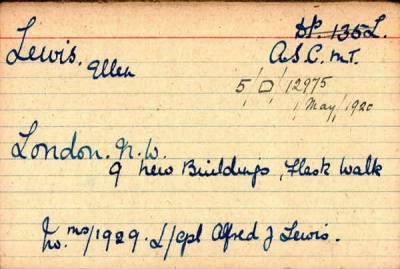 Lewis. D.P. 135L.
Ellen A.S.C. M.T.
5/D/12975
May/1920
London. N.W.
9 New Buildings, Flask Walk
No. ms/1929. L/Cpl Alfred J Lewis.